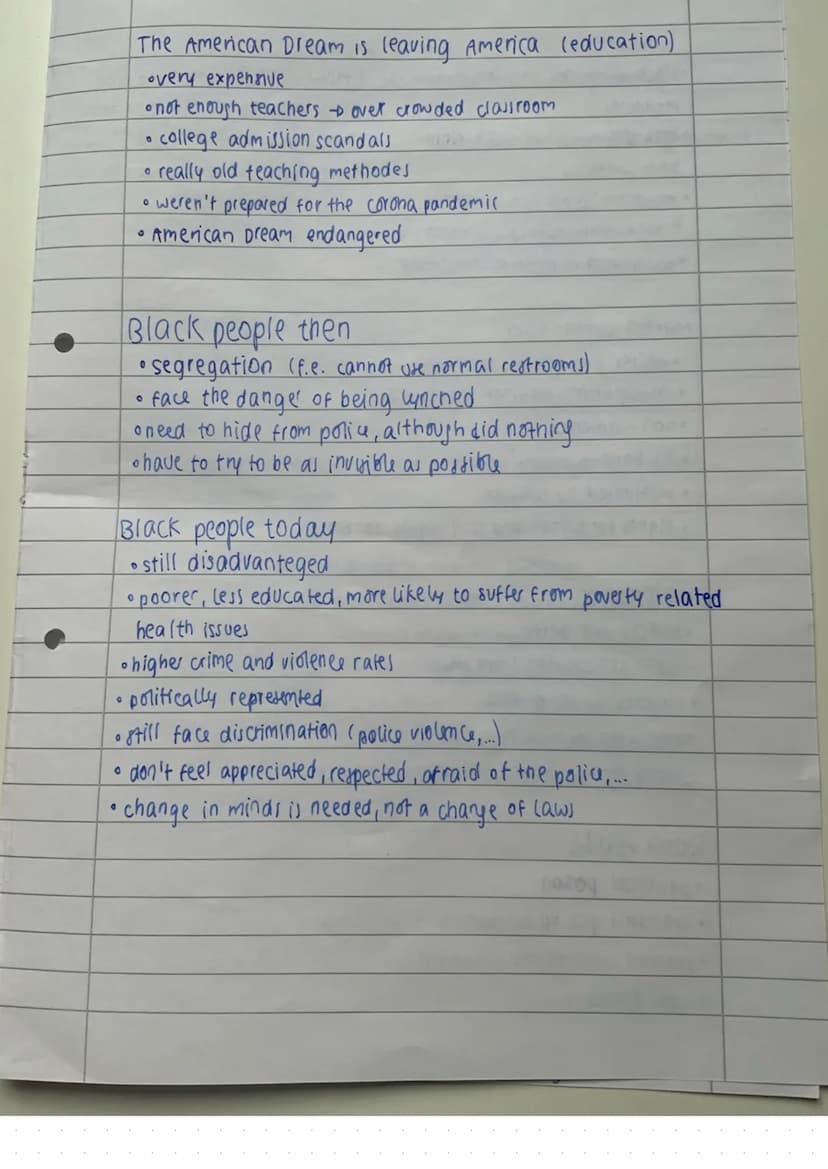 The American Dream is leaving America (education)
• very expensive
• not enough teachers → over crowded classroom
• college admission scandals
• really old teaching methodes
• weren't prepared for the corona pandemic
• American Dream endangered
Black people then
• segregation (f.e. cannot use normal restrooms)
• face the danger of being lynched
• need to hide from police, although did nothing
• have to try to be as invisible as possible
Black people today
• still disadvanteged
• poorer, less educated, more likely to suffer from poverty related
health issues
• higher crime and violence rates
• politically represented
• still face discrimination (police violence,...)
• don't feel appreciated, respected, afraid of the police,...
• change in minds is needed, not a change of laws